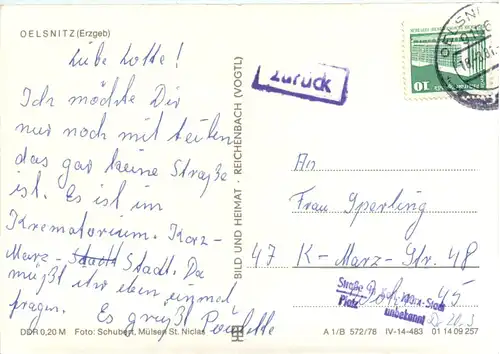 OELSNITZ (Erzgeb)
Liebe Lotte!
Ich möchte Dir
nur noch mit teilen
das gar keine Straße
ist. Es ist im
Krematorium. Karx-
Marx- Stadt Stadt. Da
müßt ihr eben einmal
fragen.
Es grüßt Paulette
DDR 0,20 M Foto: Schubert, Mülsen St. Niclas
BILD UND HEIMAT · REICHENBACH (VOGTL)
zurück
OELSNI
9156
10
An
Frau Sperling
47 K-Marx-Str. 48
45
Straße
Platz
Karl-Marx-Stadt
unbekannt
A 1/B 572/78 IV-14-483 01 14 09 257